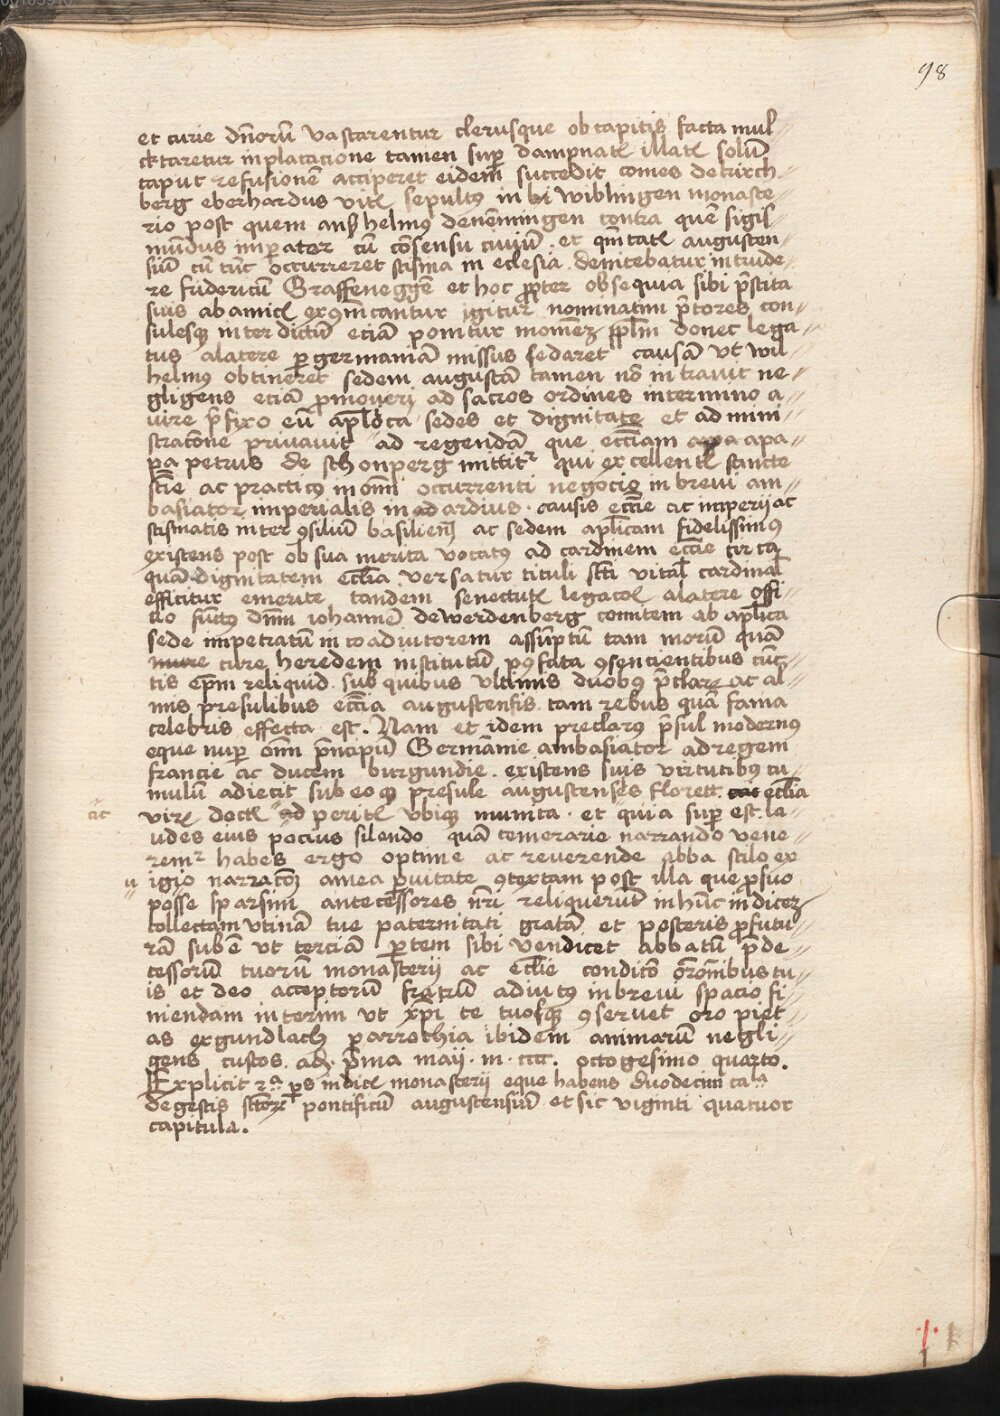 98
et curie dn̄orū vastarentur clerusque ob capitis facta mul
ctaretur in placacione tamen suꝑ dampnatꝭ illatꝭ solū
caput refusionē acciperet eidem succedit comes de kirch
berg eberhardus vitꝭ sepultus in wiblingen monaste
rio post quem anßhelmꝯ de nēningen contra quē sigis
mūdus imꝑator cū cōsensu ciuiū et augusten
siū cū tūc occurreret scisma in eclesia denitebatur intrude
re fridericū Graffeneggē et hoc ꝓpter obsequia sibi p̄stita
suis ab amicꝭ exꝯmīcantur igitur nominatim p̄tores con
sulesqꝫ interdictū eciā ponitur donec lega
tus a latere ꝑ germaniā missus sedaret causā vt wil
helmꝯ obtineret sedem augustā tamen nō intrauit ne
gligens eciā ꝓmoueri ad sacros ordines in termino a
iure p̄fixo eū ap̄lica sedes et dignitate et admini
stracōne priuauit ad regendā que ecc̄iam a pa
pa petrus de schonperg mittitᷣ qui excellentꝭ
ac practicꝯ in om̄i occurrenti negocio in breui am
basiator imperialis in ardius causis ecc̄ie ac imperij ac
scismatis inter ꝯsiliū basilien̄ ac sedem ap̄licam fidelissimꝯ
existens post ob sua merita vocatꝯ ad cardinem ecc̄ie circa
quā dignitatem ecl̄ia versatur tituli sc̄ti vital̄ cardinal̄
efficitur emerite tandem senectutꝭ a latere offi
cio fūctꝯ dn̄m iohannē de werdenberg comitem ab ap̄lica
sede impetratū in coadiutorem assūptū tam morū quā
cure heredem institutū pꝯ fata ꝯsencientibus cūc
tis ep̄m reliquid sub quibus vltimis duobꝯ p̄clare ac al
mis presulibus ecc̄ia augustensis tam rebus quā fama
celebris effecta est. Nam et idem preclarꝯ p̄sul modernꝯ
eque nuꝑ om̄ī p̄ncipū Germānie ambasiator ad regem
francie ac ducem burgundie existens suis virtutibꝯ cu
mulū adiecit sub eo qꝫ presule augustensꝭ florett ecl̄ia
ac
virꝭ doctꝭ ad peritꝭ vbiqꝫ munita et quia suꝑ est la
udes eius pocius silendo quā temerarie narrando vene
remᷣ habes ergo optime ac reuerende abba stilo ex
u
igio narracōꝫ a mea ꝑuitate ꝯtextam post illa que ꝓ suo
posse sparsim antecessores nr̄i reliquerūt in hūc indicez
collectam vtinā tue paternitati gratā et posteris ꝓfutu
rā sub ē vt terciā ꝑtem sibi vendicet abbatū p̄de
cessorū tuorū monasterij ac ecl̄ie condicō or̄omībus tu
is et deo acceptorū fratrū adiutꝯ in breui spacio fi
niendam interim vt xp̄i te tuosqꝫ ꝯseruet oro piet
as ex gundlach ꝑarrochia ibidem animarū negli
gens custos. ad. p̄ma maij. m. cccc. octogesimo quarto.
Explicit 2ᵃ ꝑs indicꝭ monasterij eque habens duodecim caᵃ
de gestis sc̄torꝝ pontificū augustensiū et sic viginti quatuor
capitula.